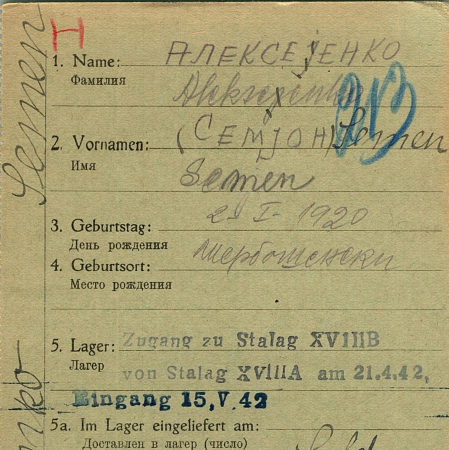 Н
1. Name: АЛЕКСЕJЕНКО
Фамилия
2. Vornamen: (СЕМJОН) Semen
Имя
Semen
3. Geburtstag: 2. I - 1920
День рождения
4. Geburtsort:
Место рождения
5. Lager: Zugang zu Stalag XVIIIB
Лагер von Stalag XVIIIA am 21.4.42,
Eingang 15.V.42
5a. Im Lager eingeliefert am:
Доставлен в лагер (число)
Semen